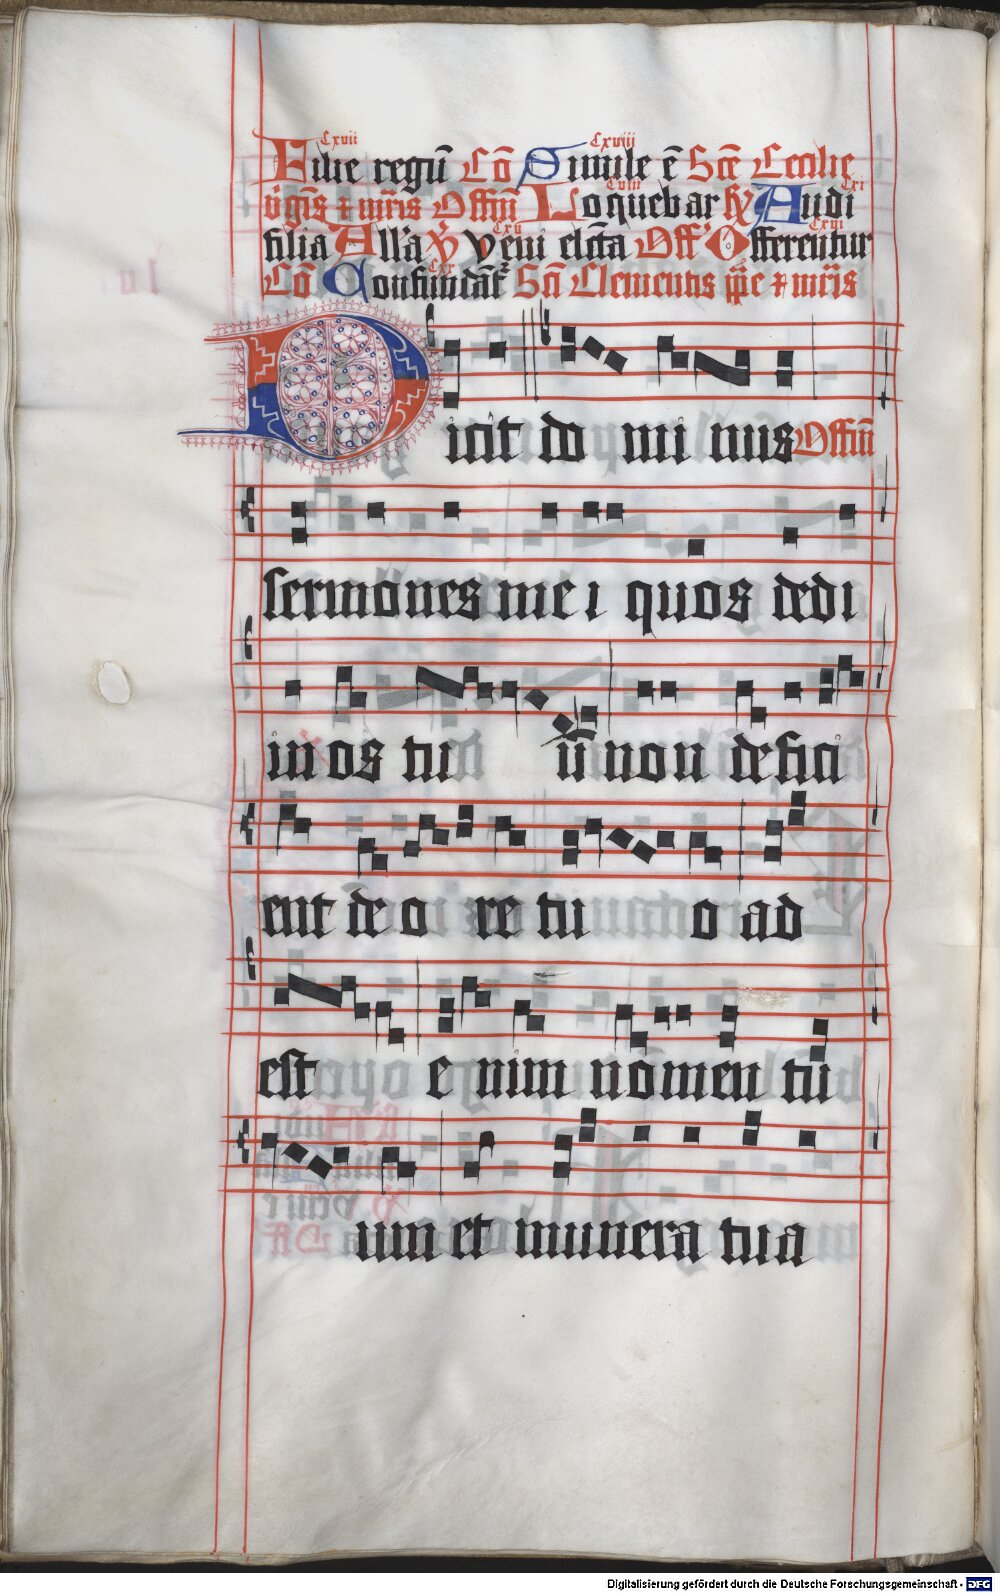 Cxvii Cxviii
Filie regū Cō Simile ē Scē Cecilie
v̇gīs ⁊ mr̄is Offm̄ Loquebar Cviii ℟ Audi Cxi
filia All'a ℣ Veni elc̄ta Cxv Off Offerentur Cxvi
Cō Confundāt Cxx Scī Clementis pp̄e ⁊ mr̄is
Dicit do mi nus Offm̄
sermones me i quos dedi
in os tu ū non defici
ent de o re tu o ad
est e nim nomen tu
um et munera tua
Digitalisierung gefördert durch die Deutsche Forschungsgemeinschaft - DFG